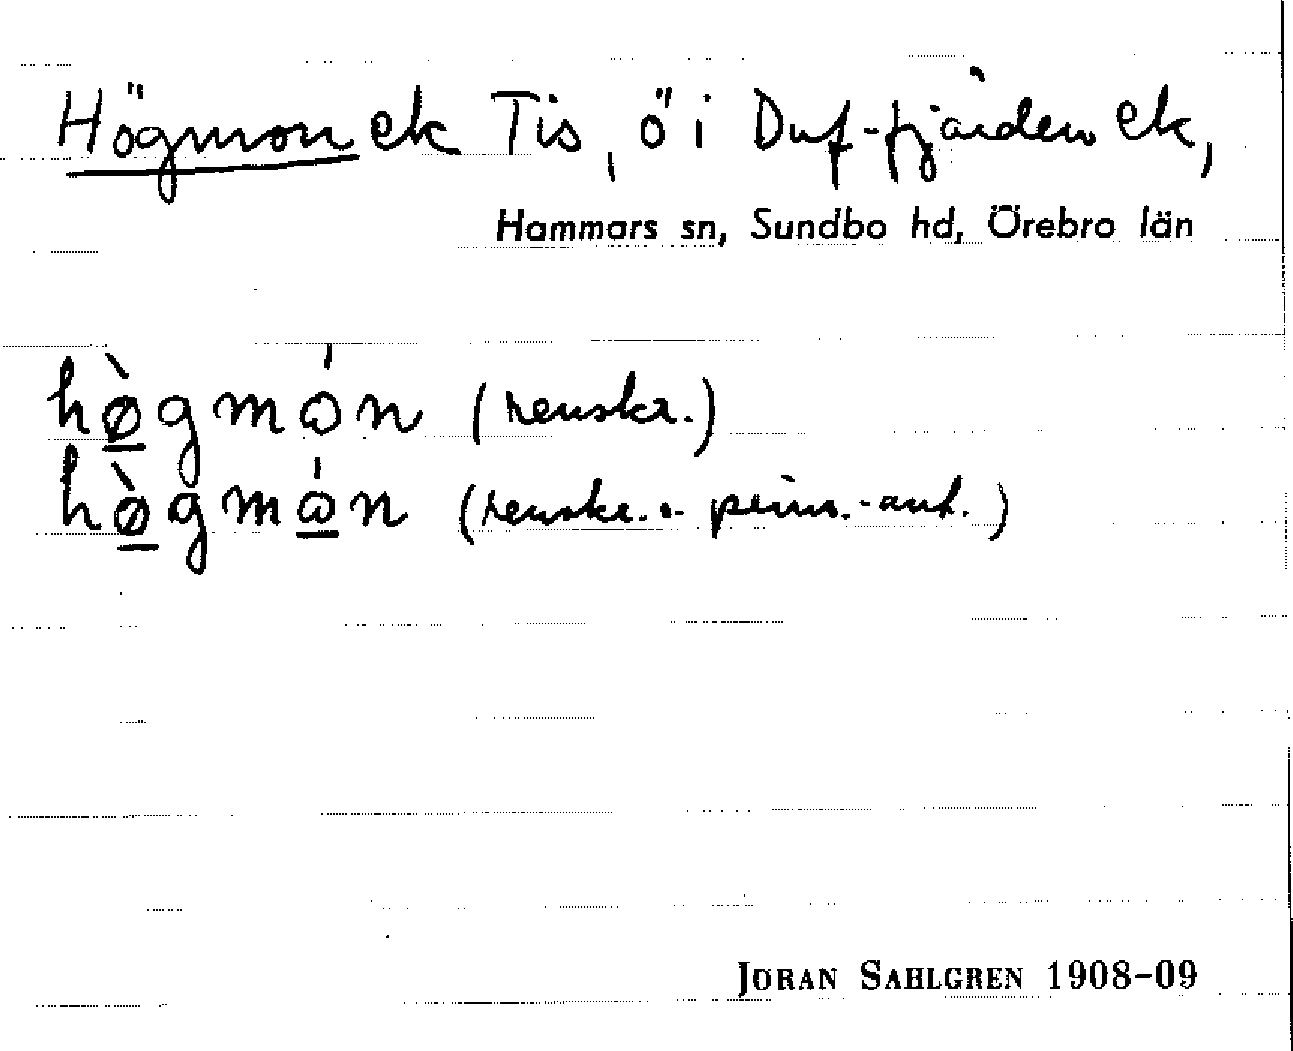 Högmon ek Tis, ö i Duf-fjärden ek,
Hammars sn, Sundbo hd, Örebro län
hø̀gmón (renskr.)
hø̀gmón (renskr. o. prim.-ant.)
JÖRAN SAHLGREN 1908-09